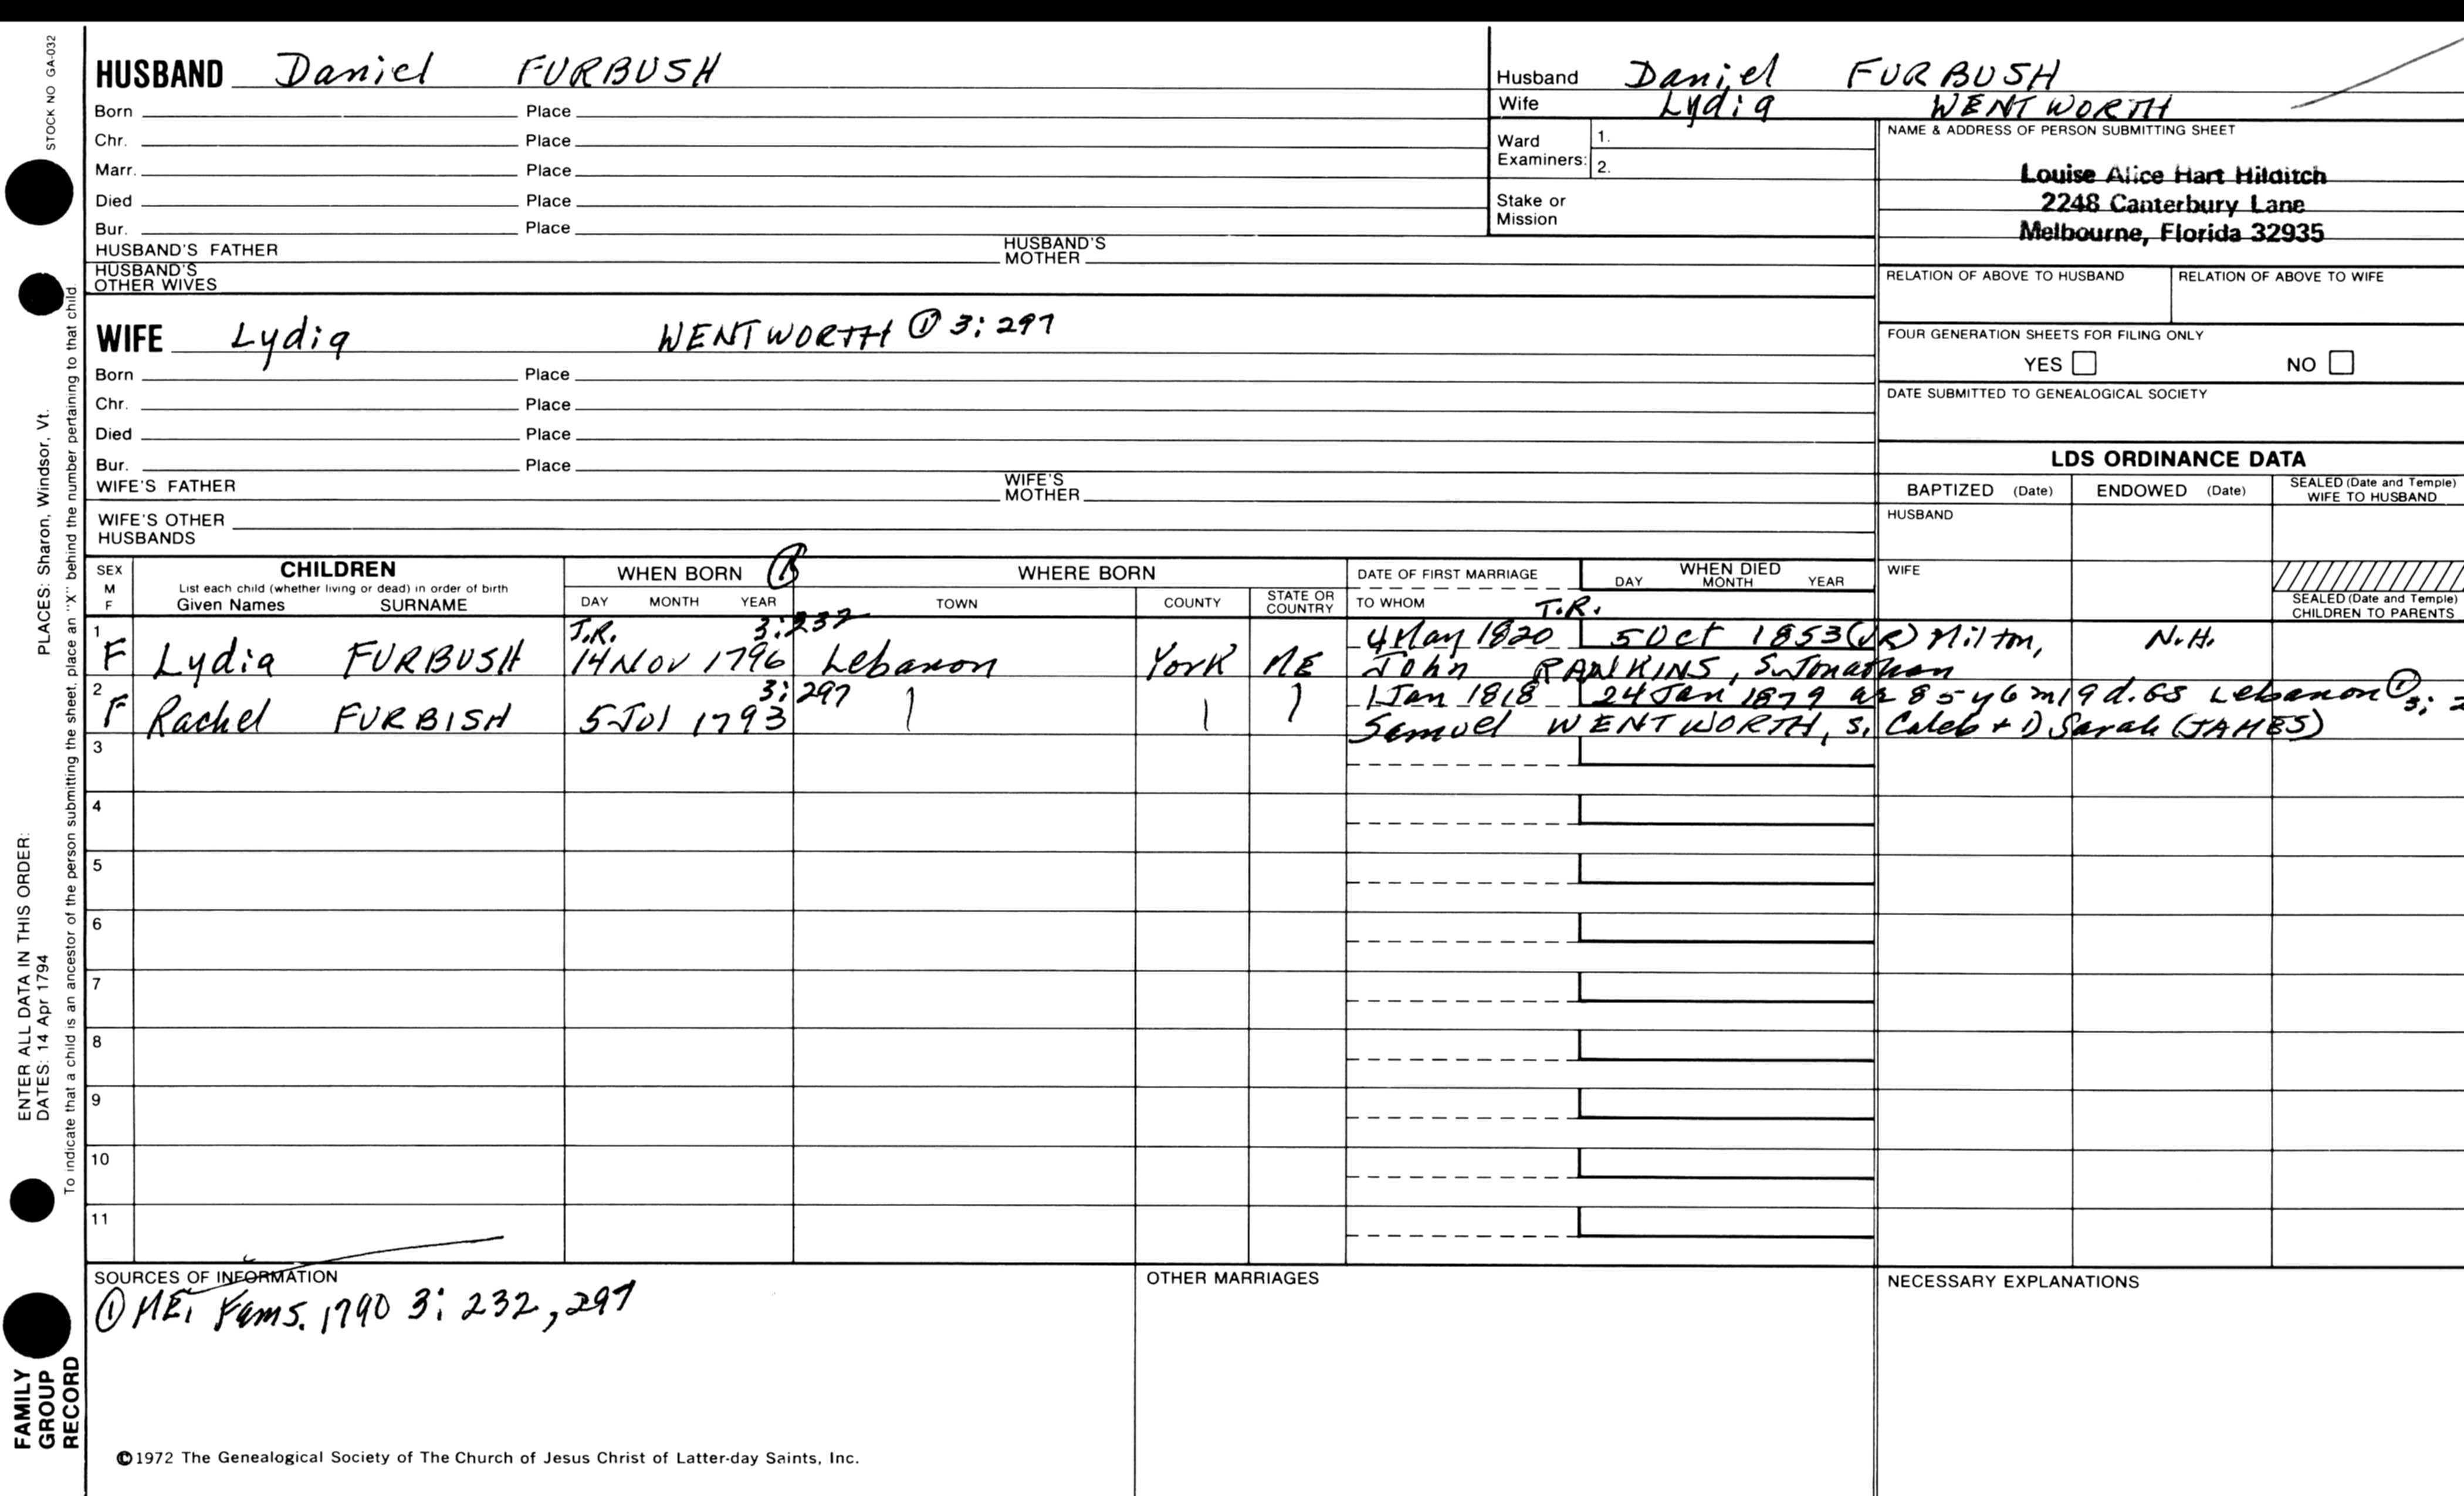 STOCK NO GA-032
PLACES: Sharon, Windsor, Vt.
ENTER ALL DATA IN THIS ORDER:
DATES: 14 Apr 1794
To indicate that a child is an ancestor of the person submitting the sheet, place an "X" behind the number pertaining to that child.
FAMILY
GROUP
RECORD
HUSBAND Daniel FURBUSH
Born Place
Chr. Place
Marr. Place
Died Place
Bur. Place
HUSBAND'S FATHER HUSBAND'S MOTHER
HUSBAND'S OTHER WIVES
Husband Daniel FURBUSH
Wife Lydia WENTWORTH
Ward Examiners: 1.
2.
Stake or Mission
NAME & ADDRESS OF PERSON SUBMITTING SHEET
Louise Alice Hart Hilditch
2248 Canterbury Lane
Melbourne, Florida 32935
RELATION OF ABOVE TO HUSBAND RELATION OF ABOVE TO WIFE
FOUR GENERATION SHEETS FOR FILING ONLY
YES NO
DATE SUBMITTED TO GENEALOGICAL SOCIETY
WIFE Lydia WENTWORTH ① 3: 297
Born Place
Chr. Place
Died Place
Bur. Place
WIFE'S FATHER WIFE'S MOTHER
WIFE'S OTHER HUSBANDS
LDS ORDINANCE DATA
BAPTIZED (Date) ENDOWED (Date) SEALED (Date and Temple) WIFE TO HUSBAND
HUSBAND
WIFE
SEALED (Date and Temple) CHILDREN TO PARENTS
SEX M F
CHILDREN
List each child (whether living or dead) in order of birth
Given Names SURNAME
WHEN BORN ①
DAY MONTH YEAR
WHERE BORN
TOWN COUNTY STATE OR COUNTRY
DATE OF FIRST MARRIAGE
TO WHOM
WHEN DIED
DAY MONTH YEAR
T.R.
1 T.R. 3:232 4 May 1820 5 Oct 1853 Milton, N.H.
F Lydia FURBUSH 14 Nov 1796 Lebanon York ME John RANKINS, S. Jonathan
2 3: 297 1 Jan 1818 24 Jan 1879 ae 85 y 6 m 19 d. GS Lebanon ① 3:
F Rachel FURBISH 5 Jul 1793 Samuel WENTWORTH, S. Caleb + Sarah (JAMES)
3
4
5
6
7
8
9
10
11
SOURCES OF INFORMATION
① ME. Fams. 1790 3: 232, 297
OTHER MARRIAGES
NECESSARY EXPLANATIONS
©1972 The Genealogical Society of The Church of Jesus Christ of Latter-day Saints, Inc.